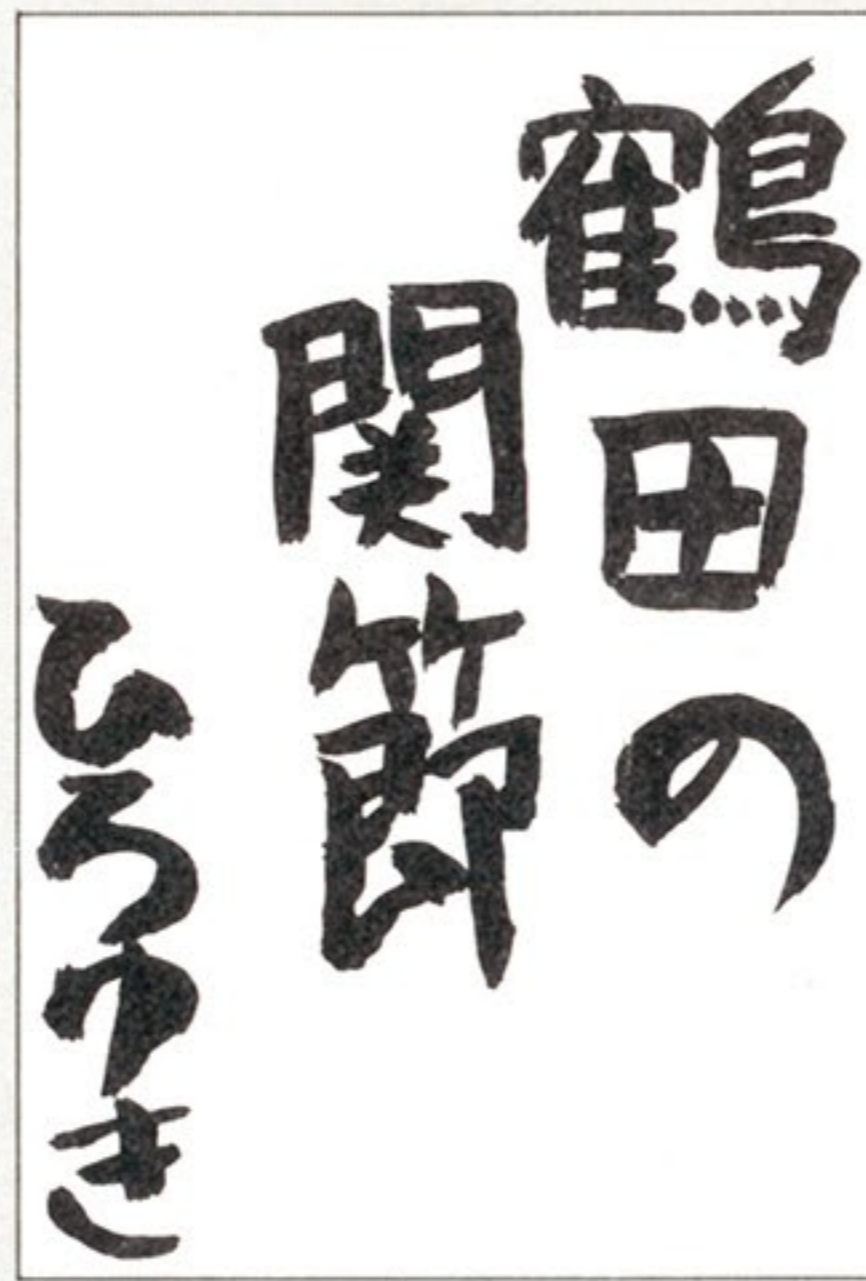 鶴田の
関節
ひろゆき